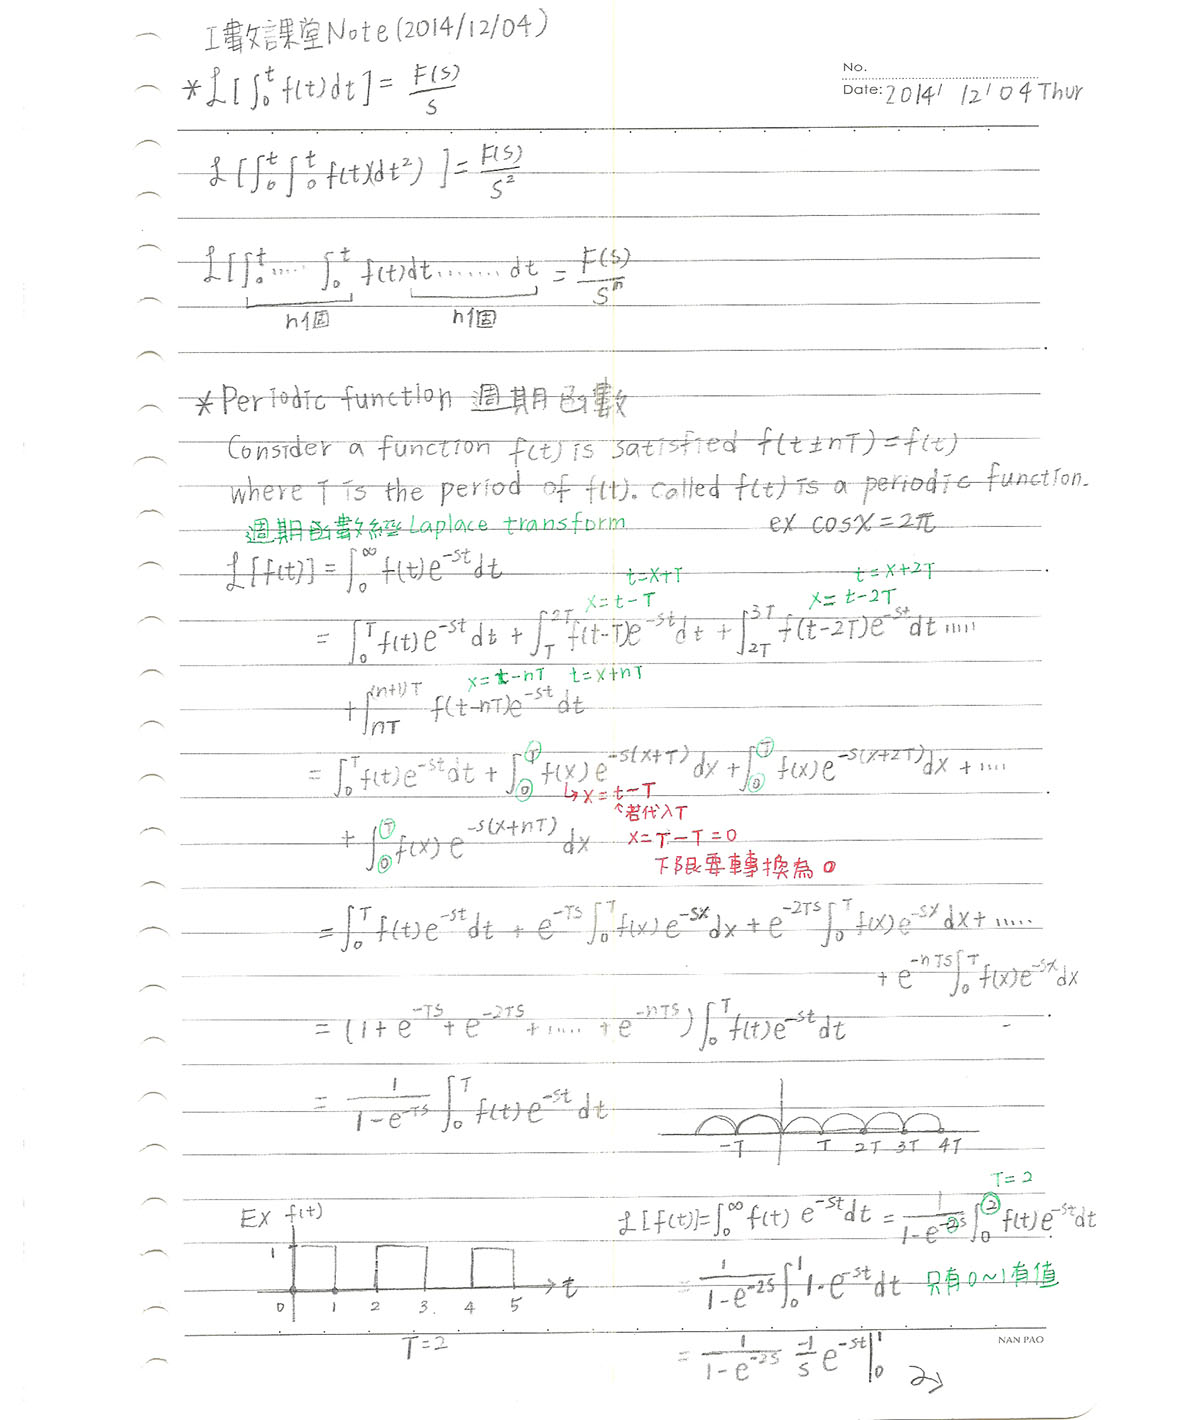 工數課堂Note(2014/12/04)
No.
Date: 2014/ 12/04 Thur
*ℒ[∫₀ᵗ f(t)dt] = F(s)/s
ℒ[∫₀ᵗ∫₀ᵗ f(t)(dt²)] = F(s)/s²
ℒ[∫₀ᵗ..... ∫₀ᵗ f(t)dt........dt = F(s)/sⁿ
n個 n個
*Periodic function 週期函數
Consider a function f(t) is satisfied f(t±nT)=f(t)
where T is the period of f(t). Called f(t) is a periodic function.
週期函數經Laplace transform ex cosx=2π
ℒ[f(t)] = ∫₀^∞ f(t)e^{-st}dt
t=x+T t=x+2T
x=t-T x=t-2T
= ∫₀^T f(t)e^{-st}dt + ∫_T^{2T} f(t-T)e^{-st}dt + ∫_{2T}^{3T} f(t-2T)e^{-st}dt.....
x=t-nT t=x+nT
+∫_{nT}^{(n+1)T} f(t-nT)e^{-st}dt
= ∫₀^T f(t)e^{-st}dt + ∫₀^T f(x)e^{-s(x+T)}dx + ∫₀^T f(x)e^{-s(x+2T)}dx + ....
↳x=t-T
↑若代入T
+ ∫₀^T f(x)e^{-s(x+nT)}dx
x=T-T=0
下限要轉換為0
= ∫₀^T f(t)e^{-st}dt + e^{-TS}∫₀^T f(x)e^{-sx}dx + e^{-2TS}∫₀^T f(x)e^{-sx}dx + .....
+ e^{-nTS}∫₀^T f(x)e^{-sx}dx
= (1+e^{-TS}+e^{-2TS}+.....+e^{-nTS})∫₀^T f(t)e^{-st}dt
= 1/(1-e^{-TS}) ∫₀^T f(t)e^{-st}dt
-T T 2T 3T 4T
T=2
EX f(t)
ℒ[f(t)]=∫₀^∞ f(t) e^{-st}dt = 1/(1-e^{-2s}) ∫₀^2 f(t)e^{-st}dt
1
t
= 1/(1-e^{-2s}) ∫₀^1 1-e^{-st}dt 只有0~1有值
0 1 2 3. 4 5
T=2
= 1/(1-e^{-2s}) -1/s e^{-st}|₀^1
2→
NAN PAO